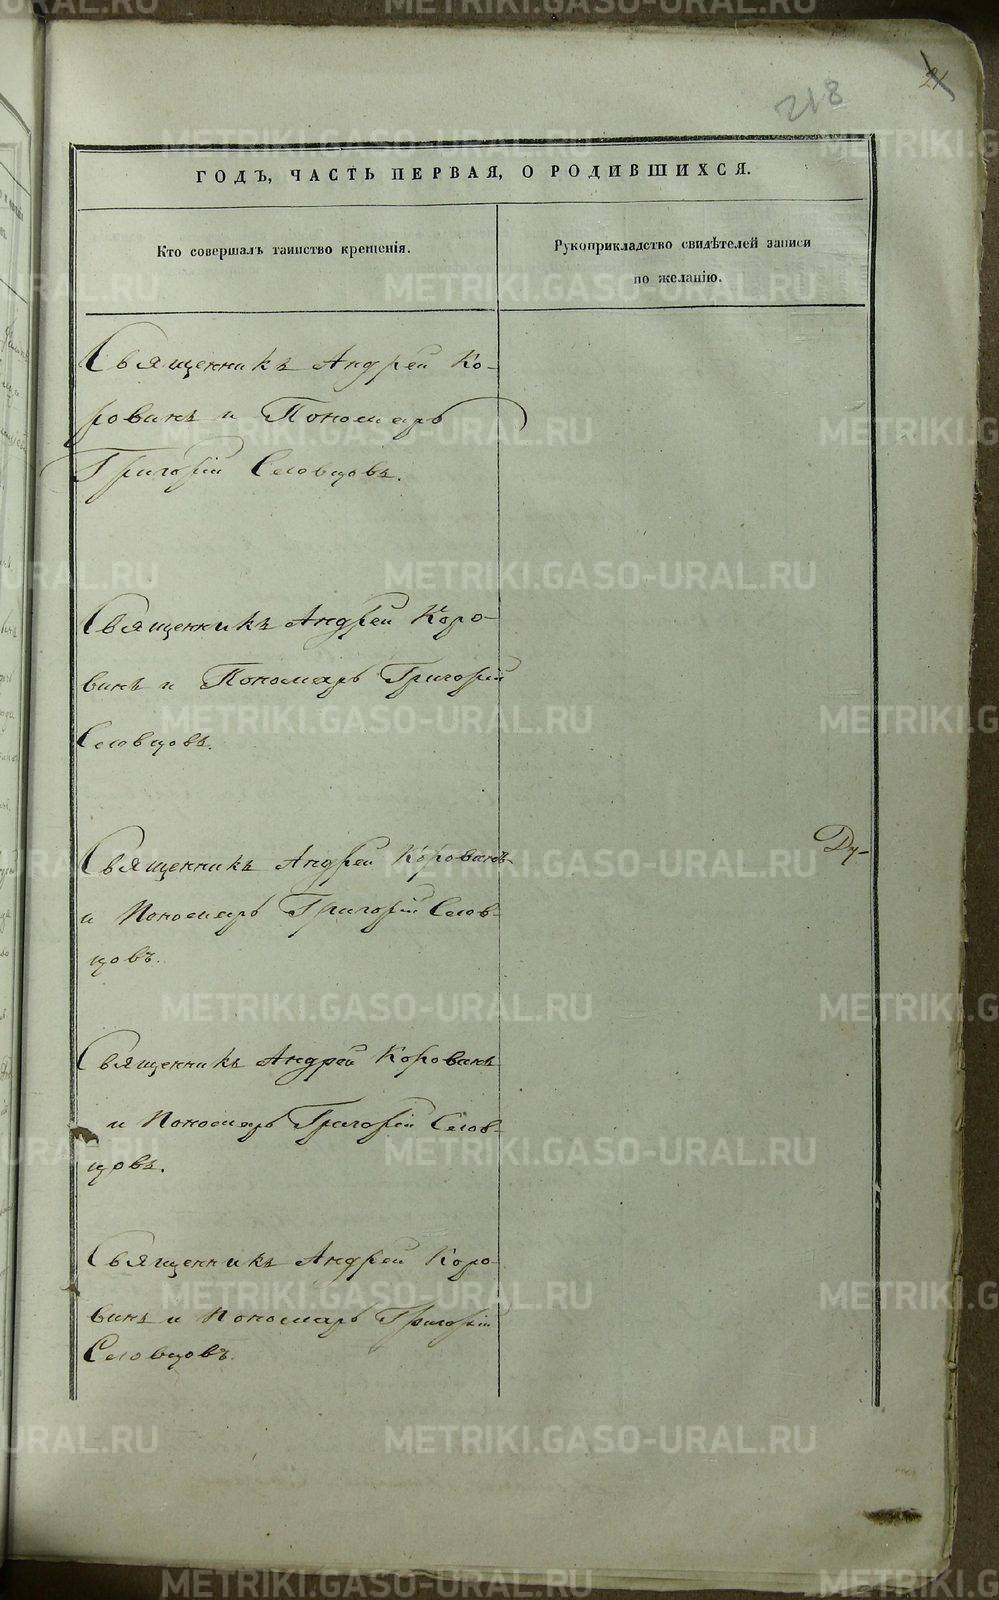 21
218
ГОДЪ, ЧАСТЬ ПЕРВАЯ, О РОДИВШИХСЯ.
Кто совершалъ таинство крещенія.
Рукоприкладство свидѣтелей записи
по желанію.
Священникъ Андрей Ко-
ровинъ и Пономарь
Григорій Словцовъ.
Священникъ Андрей Коро-
винъ и Пономарь Григорій
Словцовъ.
Священникъ Андрей Коровинъ
и Пономарь Григорій Слов-
цовъ.
Ду-
Священникъ Андрей Коровинъ
и Пономарь Григорій Слов-
цовъ.
Священникъ Андрей Коро-
винъ и Пономарь Григорій
Словцовъ.
METRIKI.GASO-URAL.RU